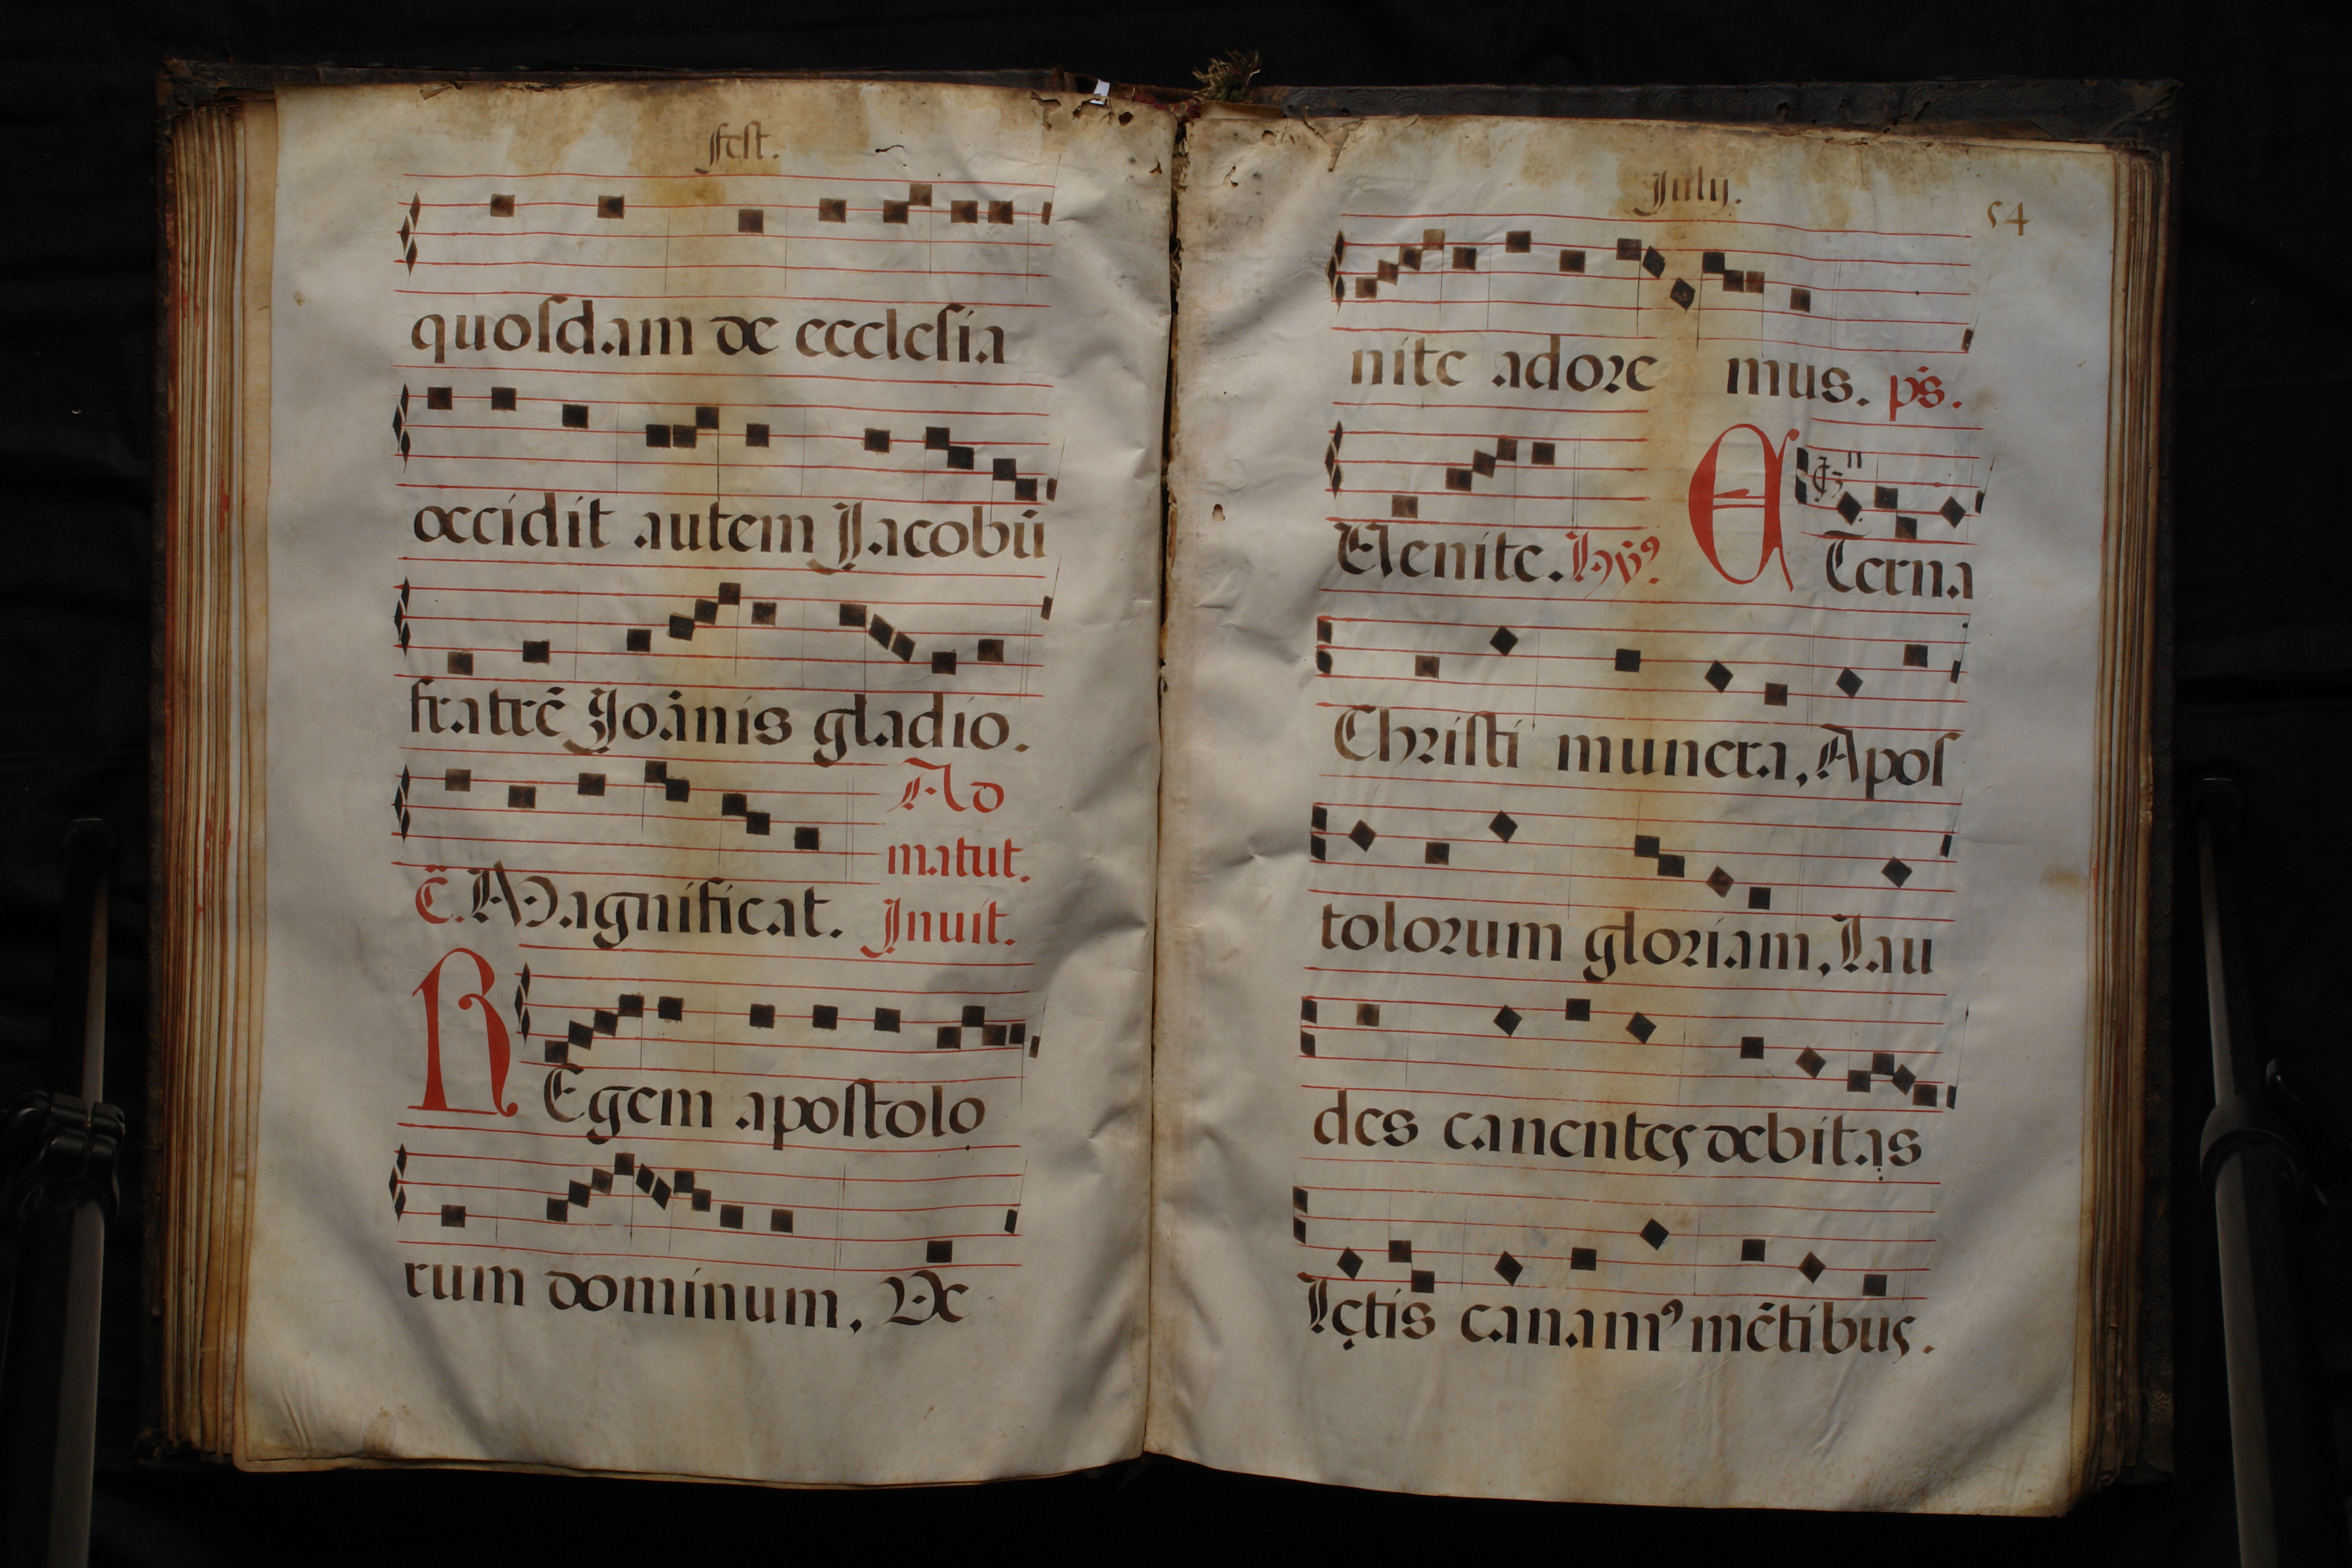 fest.
quoſdam de eccleſia
occidit autem Jacobū
fratrē Joānis gladio.
Ad
matut.
C̄. Magnificat. Inuit.
REgem apoſtolo
rum dominum, Ve
July. 54
nite adore mus. ps.
Venite. Hỹ9.
ÆTerna
Chriſti munera, Apoſ
tolorum gloriam, Lau
des canentes debitas
Lętis canam9 mētibus.